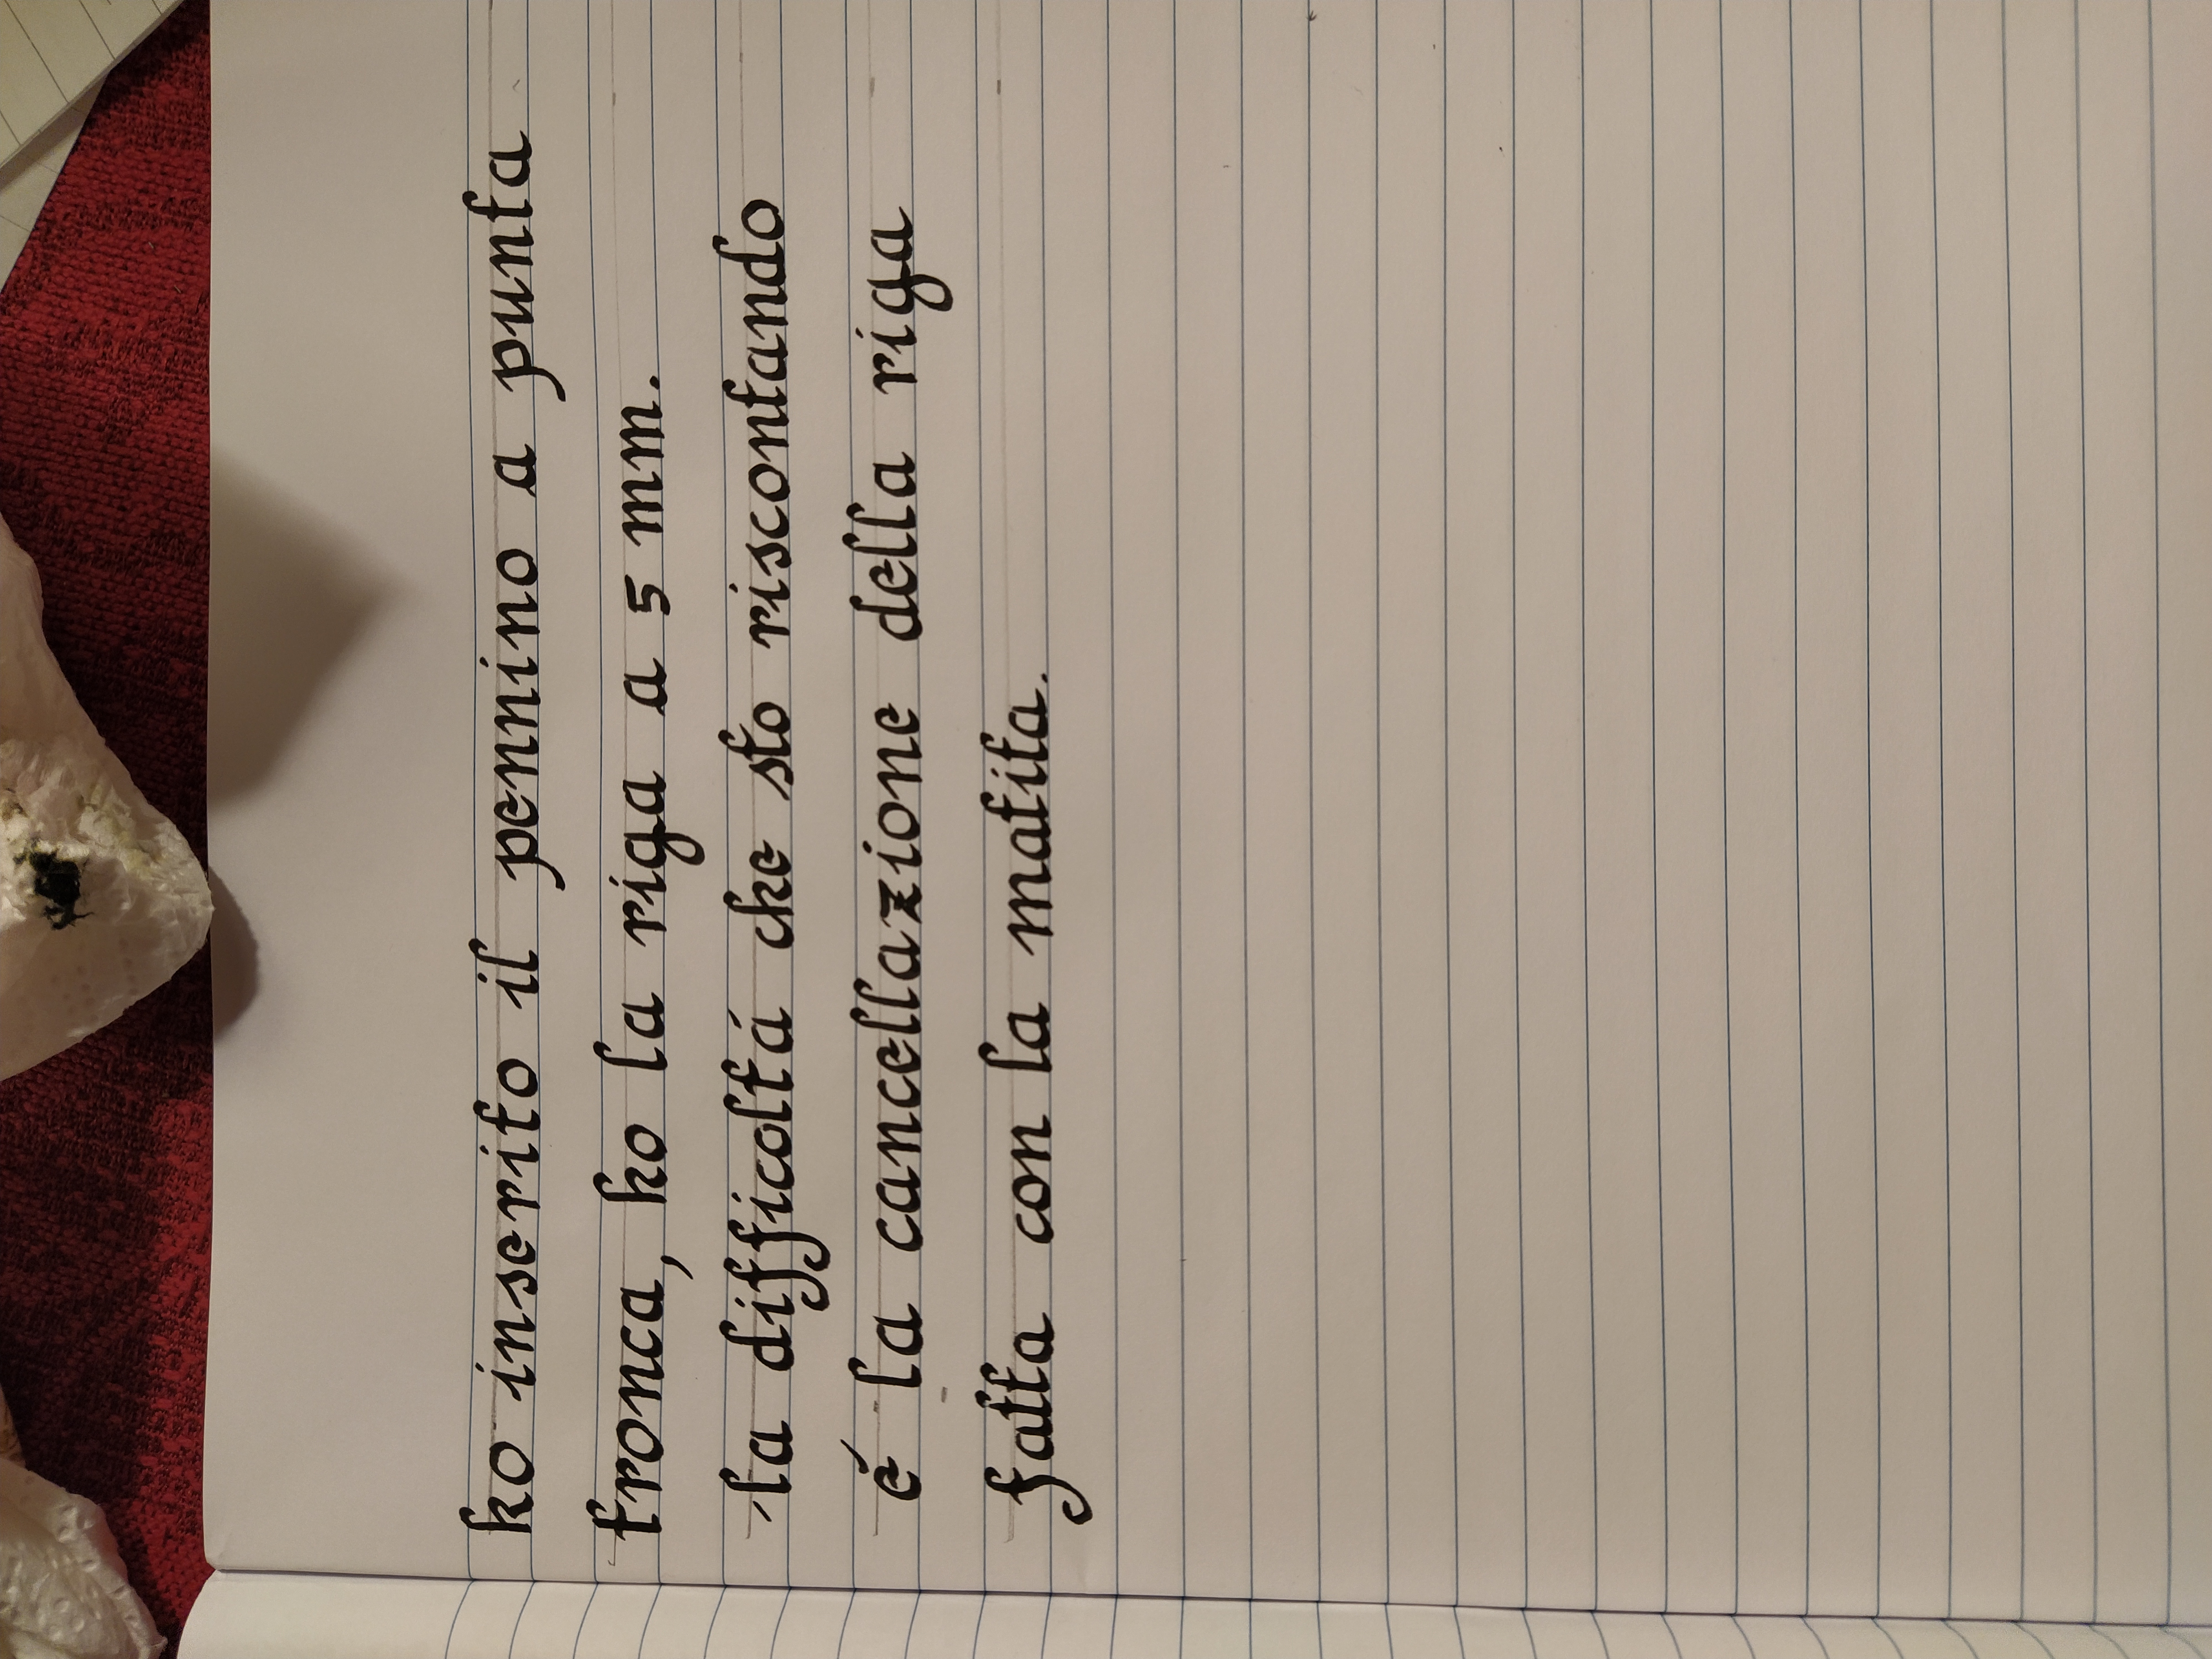 ho inserito il pennino a punta
tronca, ho la riga a 5 mm.
la difficoltá che sto riscontando
é la cancellazione della riga
fatta con la matita.